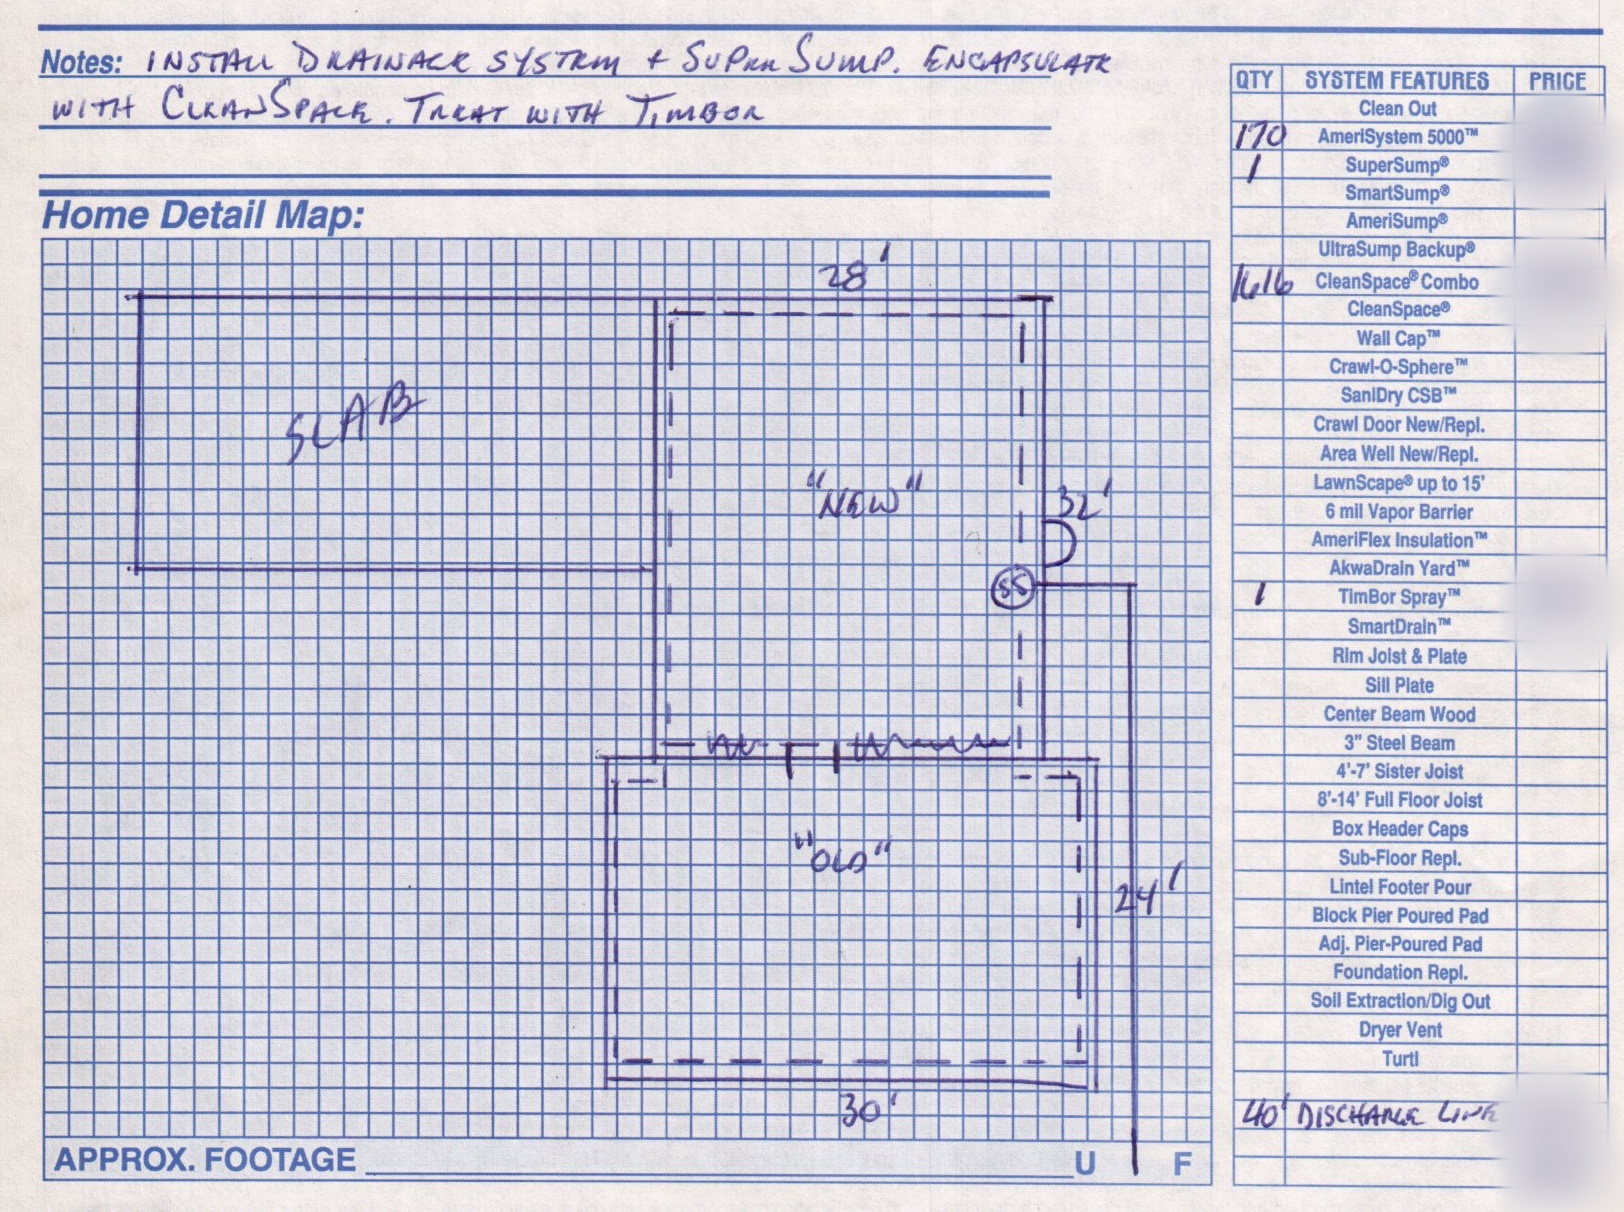 Notes: INSTALL DRAINAGE SYSTEM + SUPER SUMP. ENCAPSULATE
WITH CLEANSPACE. TREAT WITH TIMBOR
Home Detail Map:
28'
SLAB
"NEW"
32'
SS
"OLD"
24'
30'
APPROX. FOOTAGE U F
QTY SYSTEM FEATURES PRICE
Clean Out
170 AmeriSystem 5000™
1 SuperSump®
SmartSump®
AmeriSump®
UltraSump Backup®
1616 CleanSpace® Combo
CleanSpace®
Wall Cap™
Crawl-O-Sphere™
SaniDry CSB™
Crawl Door New/Repl.
Area Well New/Repl.
LawnScape® up to 15'
6 mil Vapor Barrier
AmeriFlex Insulation™
AkwaDrain Yard™
1 TimBor Spray™
SmartDrain™
Rim Joist & Plate
Sill Plate
Center Beam Wood
3" Steel Beam
4'-7' Sister Joist
8'-14' Full Floor Joist
Box Header Caps
Sub-Floor Repl.
Lintel Footer Pour
Block Pier Poured Pad
Adj. Pier-Poured Pad
Foundation Repl.
Soil Extraction/Dig Out
Dryer Vent
Turtl
40' DISCHARGE LINE